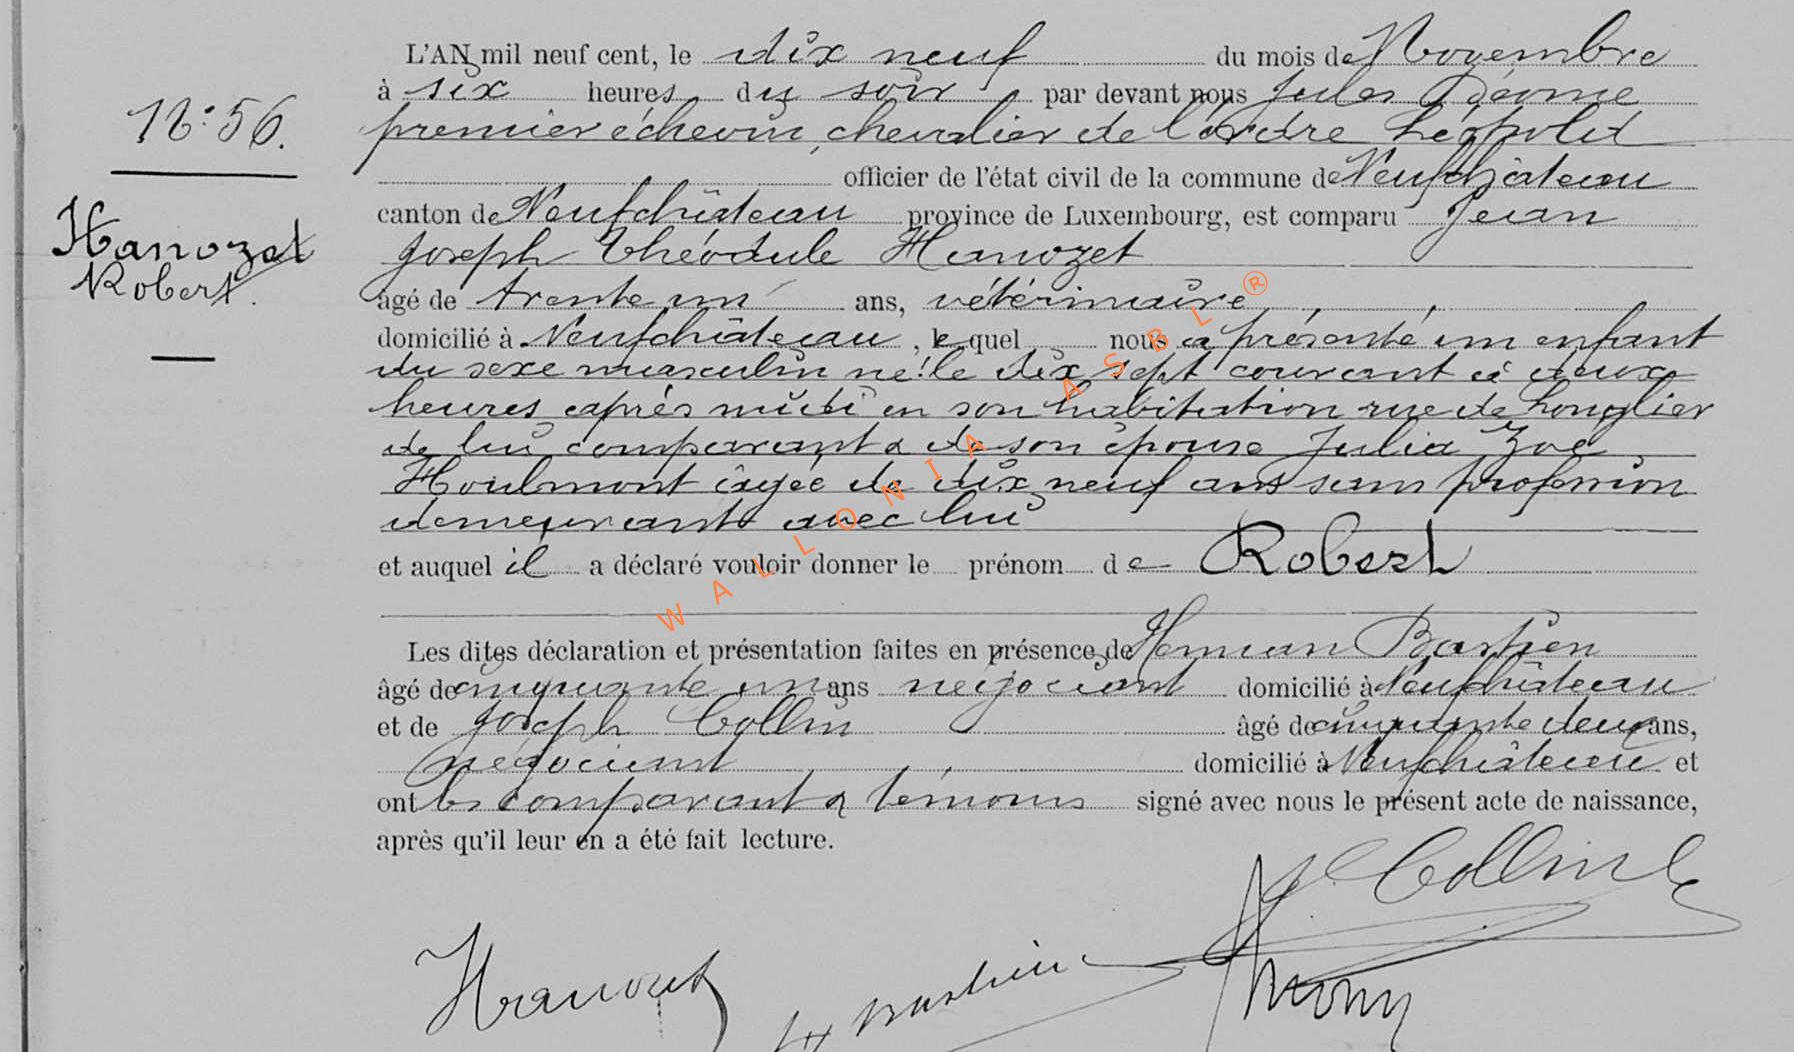 L'AN mil neuf cent, le dix neuf du mois de Novembre
à six heures du soir par devant nous Jules
N° 56. premier échevin, chevalier de l'ordre Léopold
officier de l'état civil de la commune de Neufchâteau
canton de Neufchâteau province de Luxembourg, est comparu Jean
Hanozet Joseph Théodule Hanozet
Robert. âgé de trente un ans, vétérinaire
domicilié à Neufchâteau, lequel nous a présenté un enfant
du sexe masculin né le dix sept courant à deux
heures après midi en son habitation rue de Longlier
de lui comparant & de son épouse Julia Zoé
Houlmont âgée de dix neuf ans sans profession
demeurant avec lui
et auquel il a déclaré vouloir donner le prénom de Robert
Les dites déclaration et présentation faites en présence de Herman Bastien
âgé de cinquante un ans négociant domicilié à Neufchâteau
et de Joseph Collin âgé de cinquante deux ans,
négociant domicilié à Neufchâteau et
ont les comparant & témoins signé avec nous le présent acte de naissance,
après qu'il leur en a été fait lecture.
J. Collin
Hanozet H Bastien
WALLONIA ASBL ®